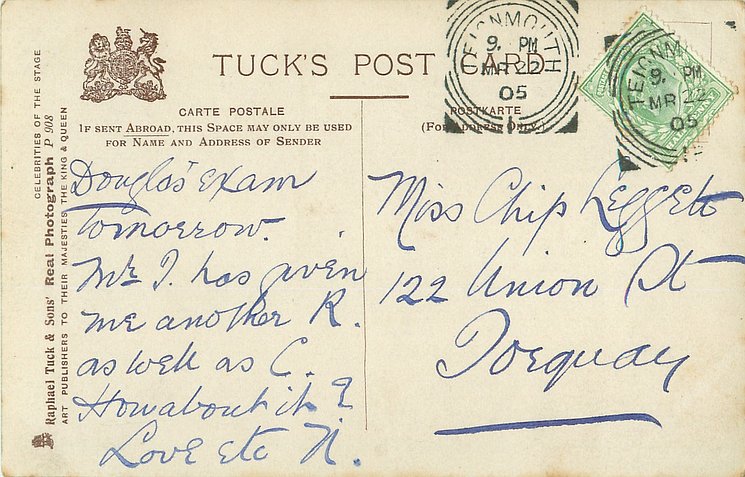 CELEBRITIES OF THE STAGE
Raphael Tuck & Sons' Real Photograph P 908
ART PUBLISHERS TO THEIR MAJESTIES THE KING & QUEEN
TUCK'S POST CARD
CARTE POSTALE
IF SENT ABROAD, THIS SPACE MAY ONLY BE USED
FOR NAME AND ADDRESS OF SENDER
POSTKARTE
(FOR ADDRESS ONLY.)
TEIGNMOUTH
9. PM
MR 22
05
TEIGNM
9. PM
MR 22
05
Douglas' Exam
tomorrow.
Mr J. has given
me another R.
as well as C.
How about it?
Love etc N.
Miss Chip Leggett
122 Union St
Torquay